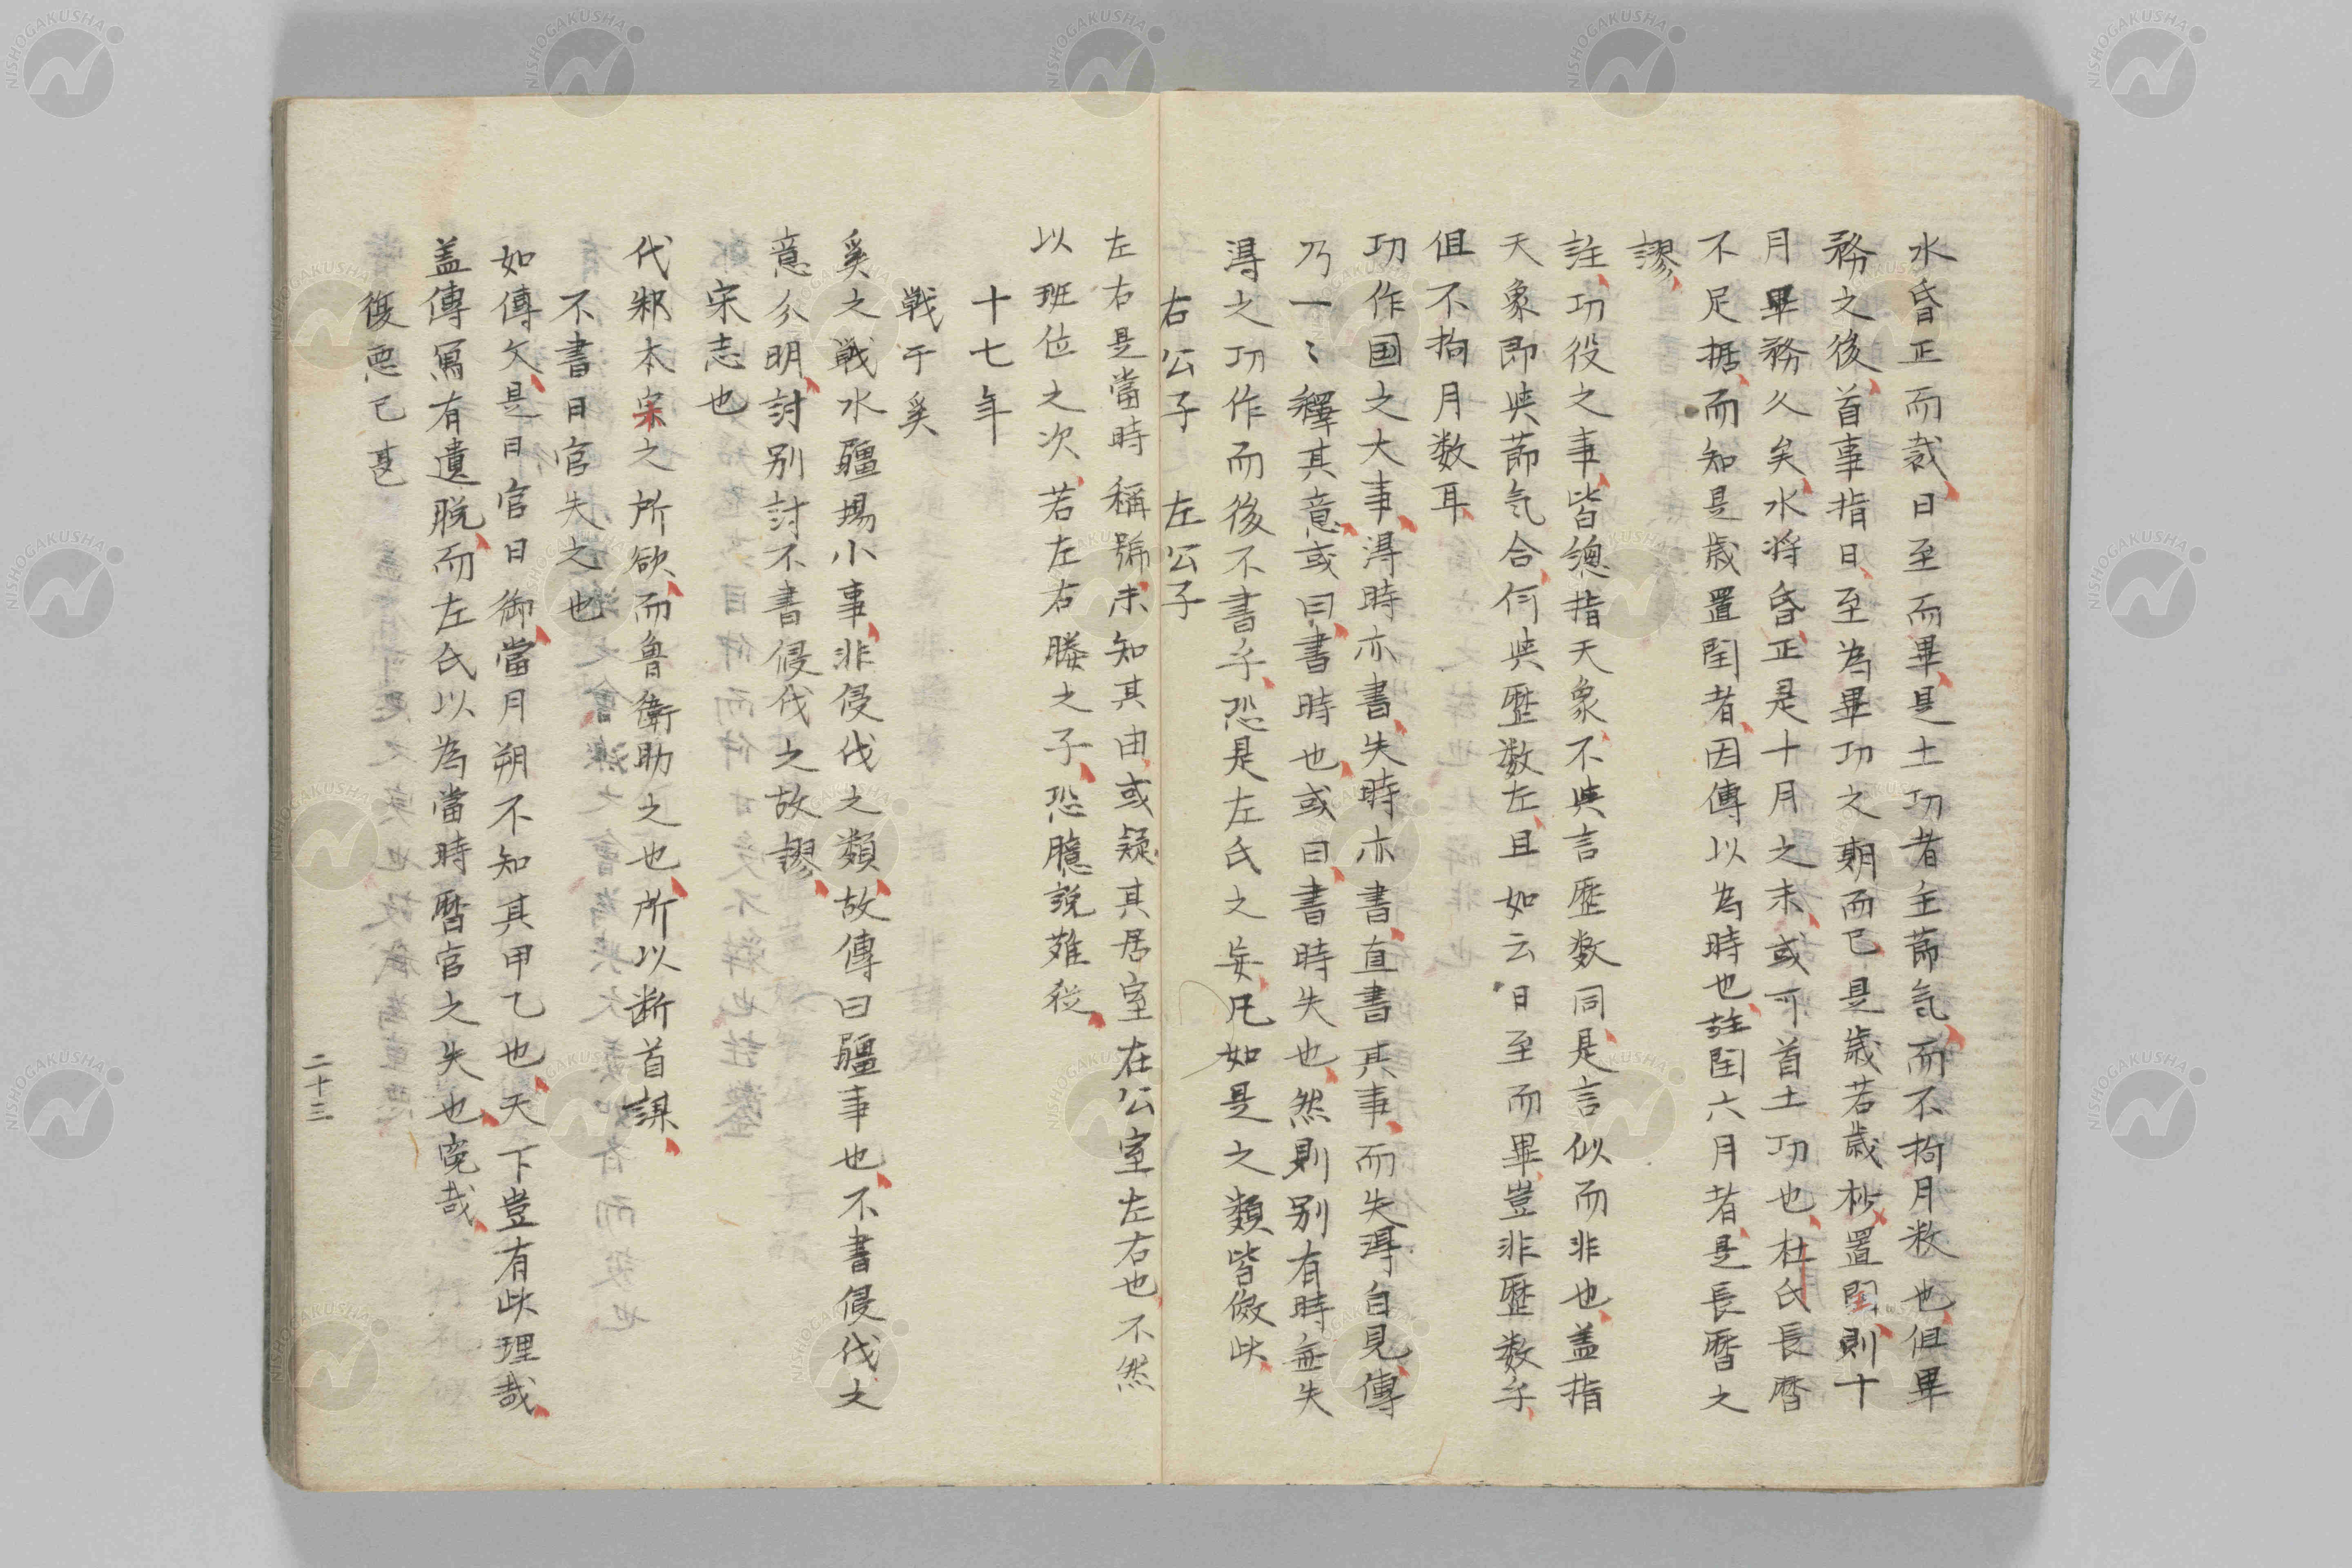 水昏正而栽日至而畢是土功者主節気而不拘月数也但畢
務之後首事指日至為畢功之期而已是歳若歳杪置閏則十
月畢務久矣水将昏正是十月之末或可首土功也杜氏長暦
不足据而知是歳置閏者因傳以為時也註閏六月者是長暦之
謬
註功役之事皆總指天象不與言歴数同是言似而非也盖指
天象即與節気合何與歴数左且如云日至而畢豈非歴数乎
但不拘月数耳
功作国之大事得時亦書失時亦書直書其事而失得自見傳
乃一〻釋其意或曰書時也或曰書時失也然則別有時無失
得之功作而後不書乎恐是左氏之妄凡如是之類皆倣此
右公子 左公子
左右是當時稱號未知其由或疑其居室在公室左右也不然
以班位之次若左右媵之子恐臆説難從
十七年
戦于奚
奚之戦水疆場小事非侵伐之類故傳曰疆事也不書侵伐之
意分明討別討不書侵伐之故謬
宋志也
伐邾本宋之所欲而魯衛助之也所以断首謀
不書日官失之也
如傳文是日官日御當月朔不知其甲乙也天下豈有此理哉
盖傳寫有遺脱而左氏以為當時暦官之失也寃哉
復思已甚
二十三
NISHOGAKUSHA